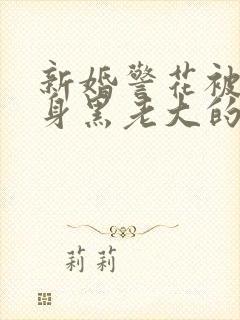 新婚警花被
身黑老大的
莉莉